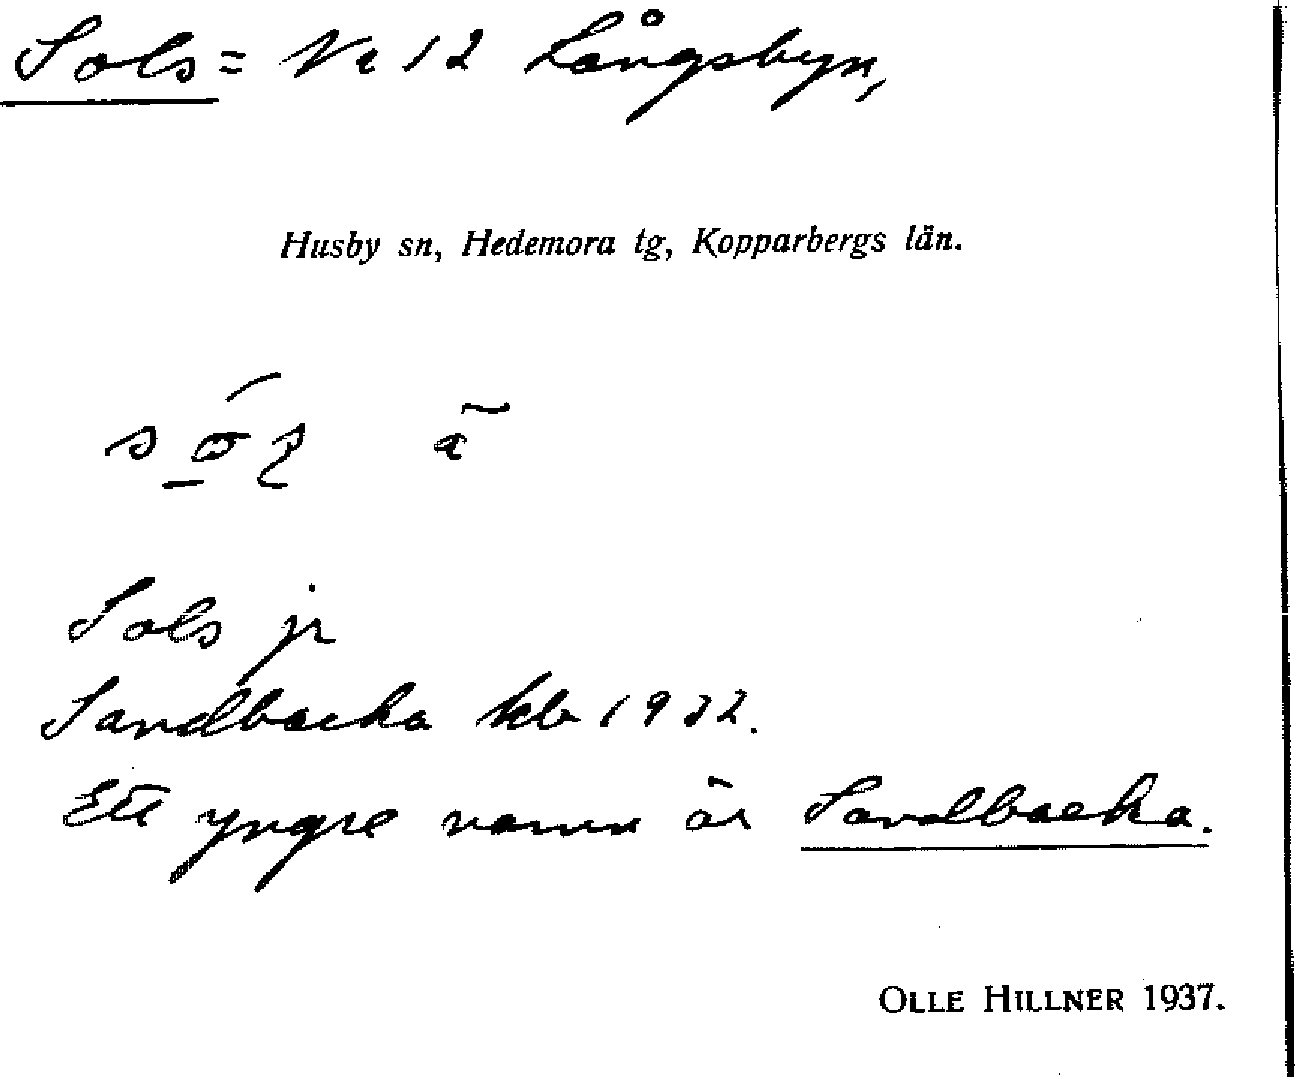 Sols = Nr 12 Långsbyn,
Husby sn, Hedemora tg, Kopparbergs län.
Sols jr
Sandbacka kb 1932.
Ett yngre namn är Sandbacka.
OLLE HILLNER 1937.